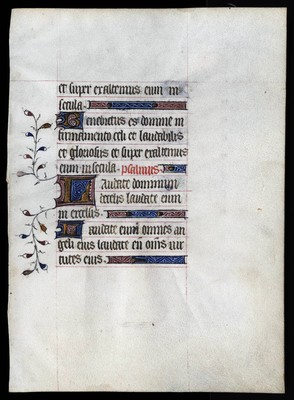 et super exaltemus eum in
secula.
Benedictus es domine in
firmamento celi et laudabilis
et gloriosus et super exaltemus
eum in secula. psalmus
Laudate dominum
de celis laudate eum
in excelsis.
Laudate eum omnes an
geli eius laudate eū om̄s vir
tutes eius.